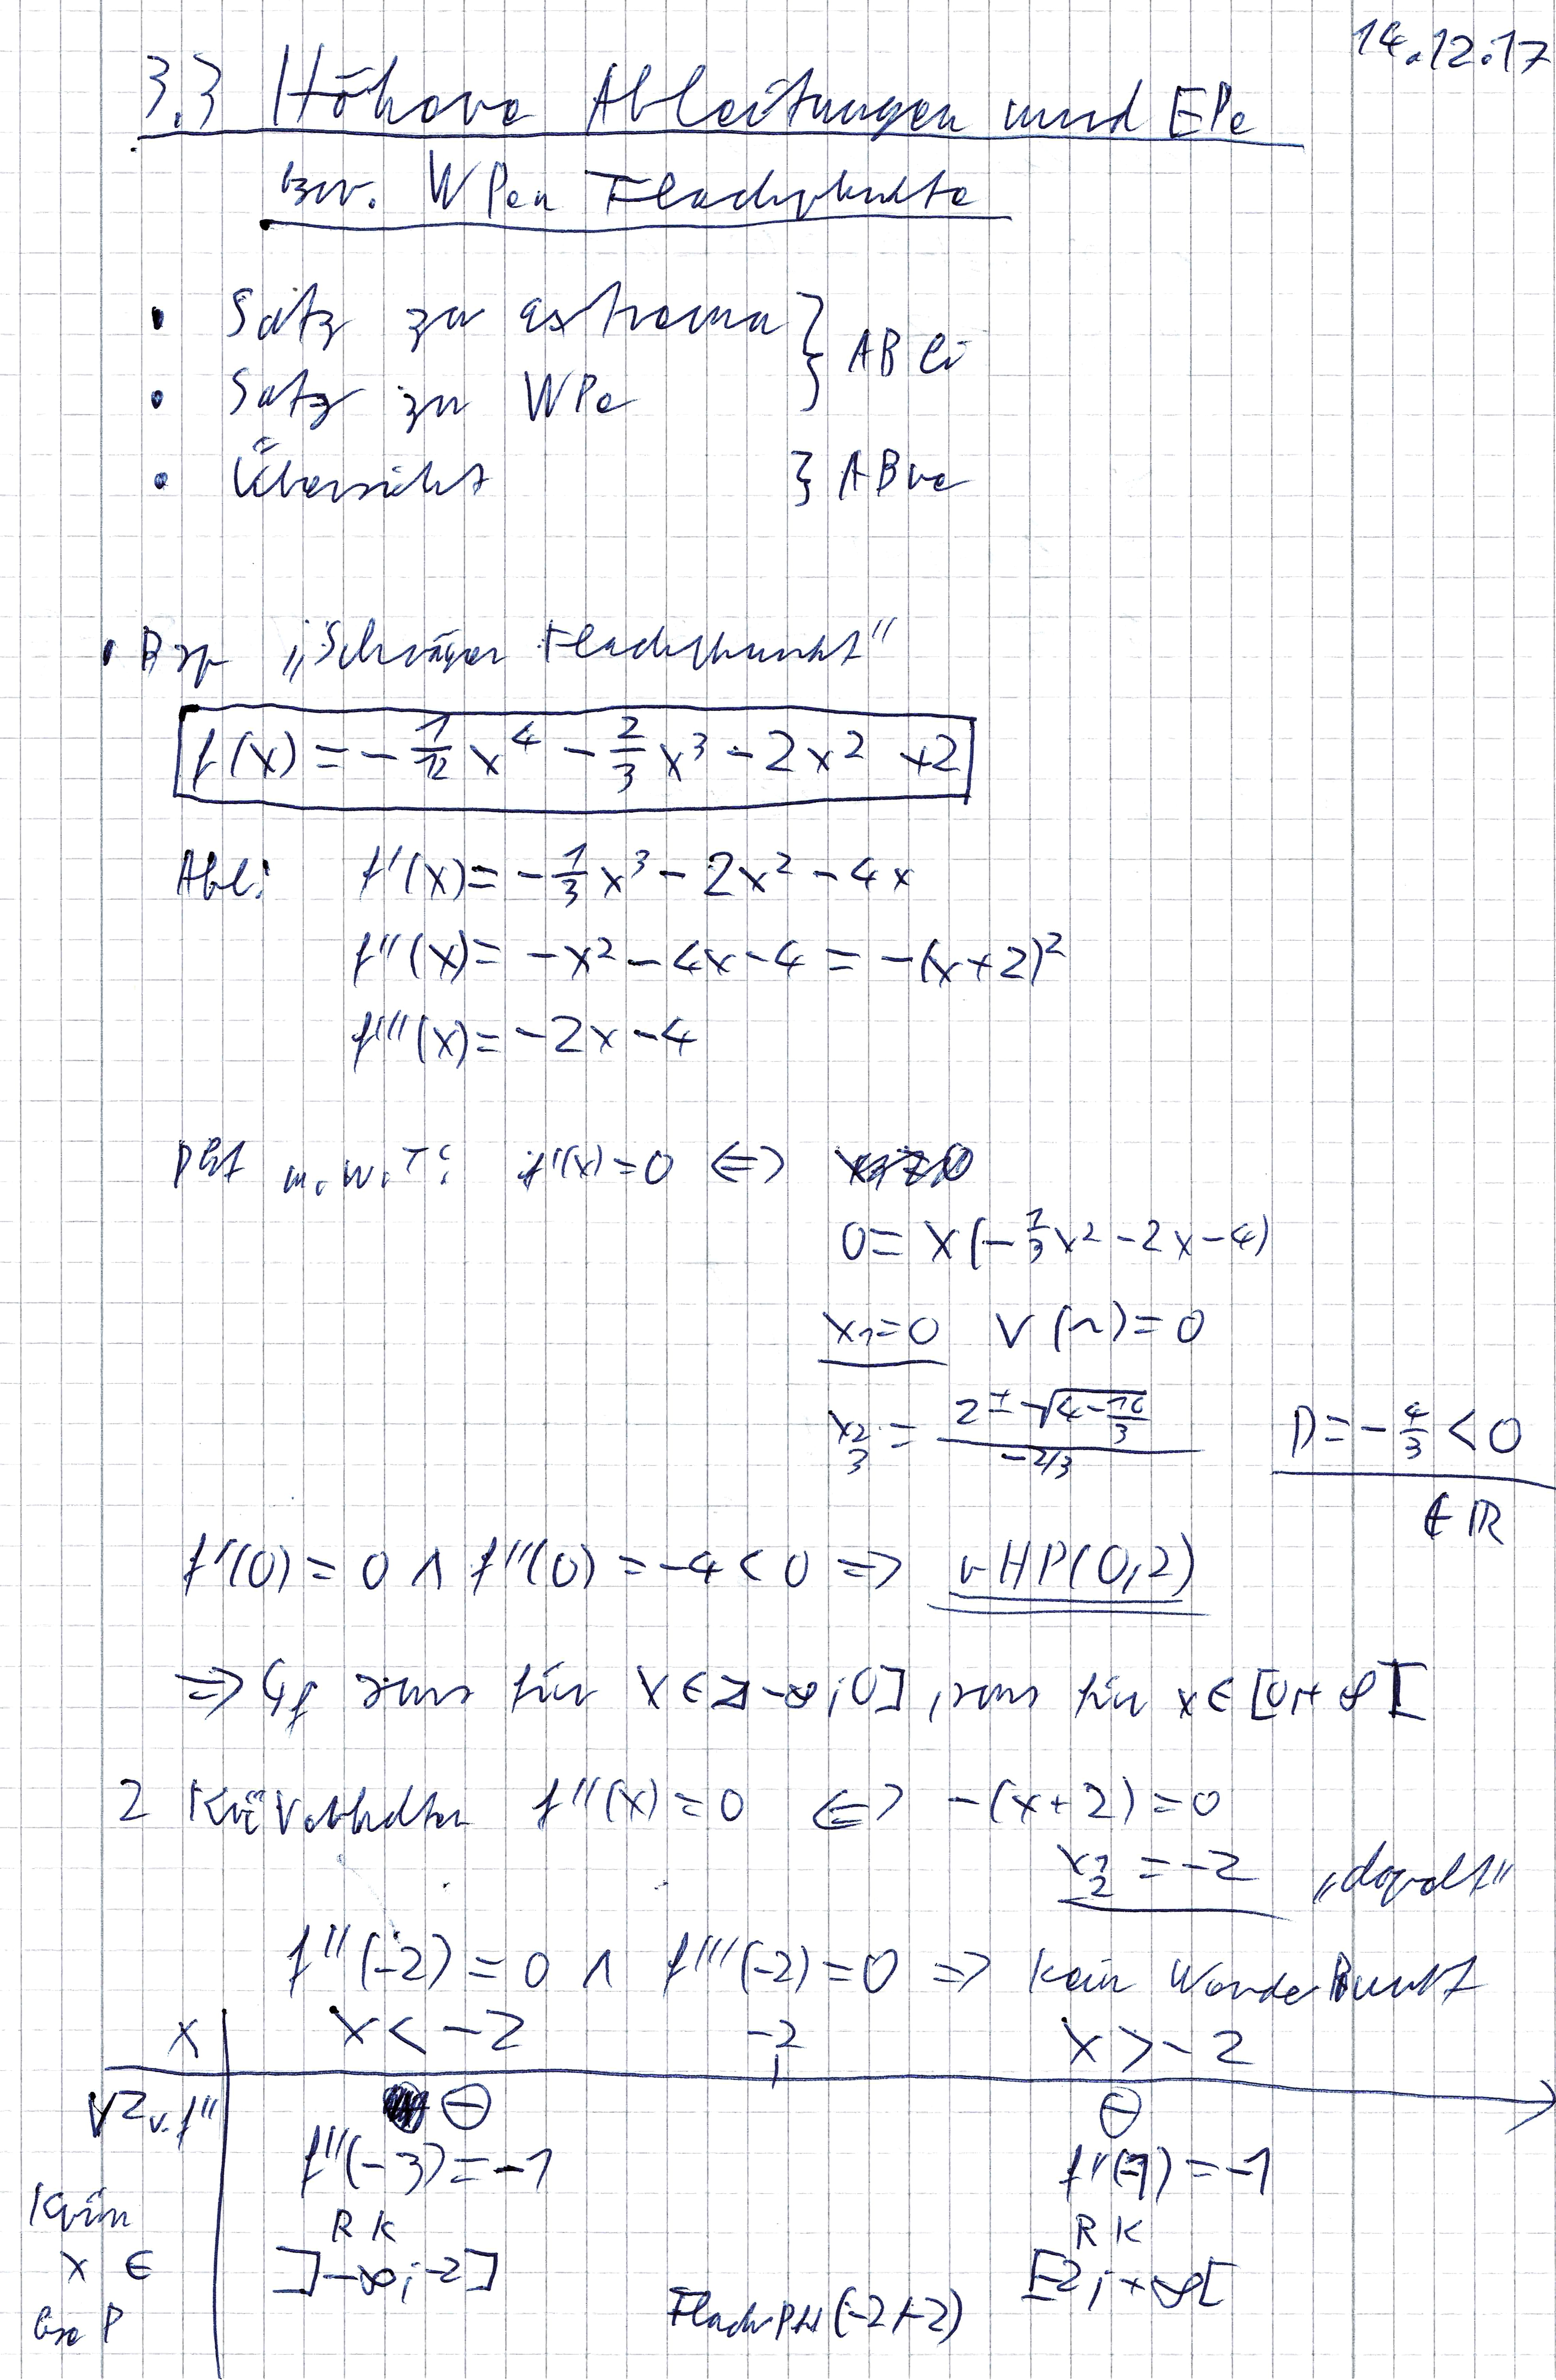 14.12.17
3.3 Höhere Ableitungen und EPe
bzw. WPen Flachpunkte
• Satz zu extrema } AB li
• Satz zu WPe
• Übersicht } AB re
• Bsp „Schräger Flachpunkt"
f(x) = -1/12 x^4 - 2/3 x^3 - 2x^2 + 2
Abl: f'(x) = -1/3 x^3 - 2x^2 - 4x
f''(x) = -x^2 - 4x - 4 = -(x+2)^2
f'''(x) = -2x - 4
Pkt m.w.T: f'(x) = 0 <=>
0 = x(-1/3 x^2 - 2x - 4)
x1 = 0 ∨ (~) = 0
x2/3 = (2 ± √(4 - 16/3)) / (-2/3) D = -4/3 < 0
∉ ℝ
f'(0) = 0 ∧ f''(0) = -4 < 0 => rHP(0,2)
=> Gf sms für x ∈ ]-∞;0], sms für x ∈ [0;+∞[
2 Krü Verhalten f''(x) = 0 <=> -(x+2) = 0
x1/2 = -2 „doppelt"
f''(-2) = 0 ∧ f'''(-2) = 0 => kein WendePunkt
x | x < -2 -2 x > -2
VZ v. f'' | ⊖ ⊖
f''(-3) = -1 f''(-1) = -1
Krüm RK RK
x ∈ ]-∞;-2] [-2;+∞[
bzw P FlachPkt(-2/-2)